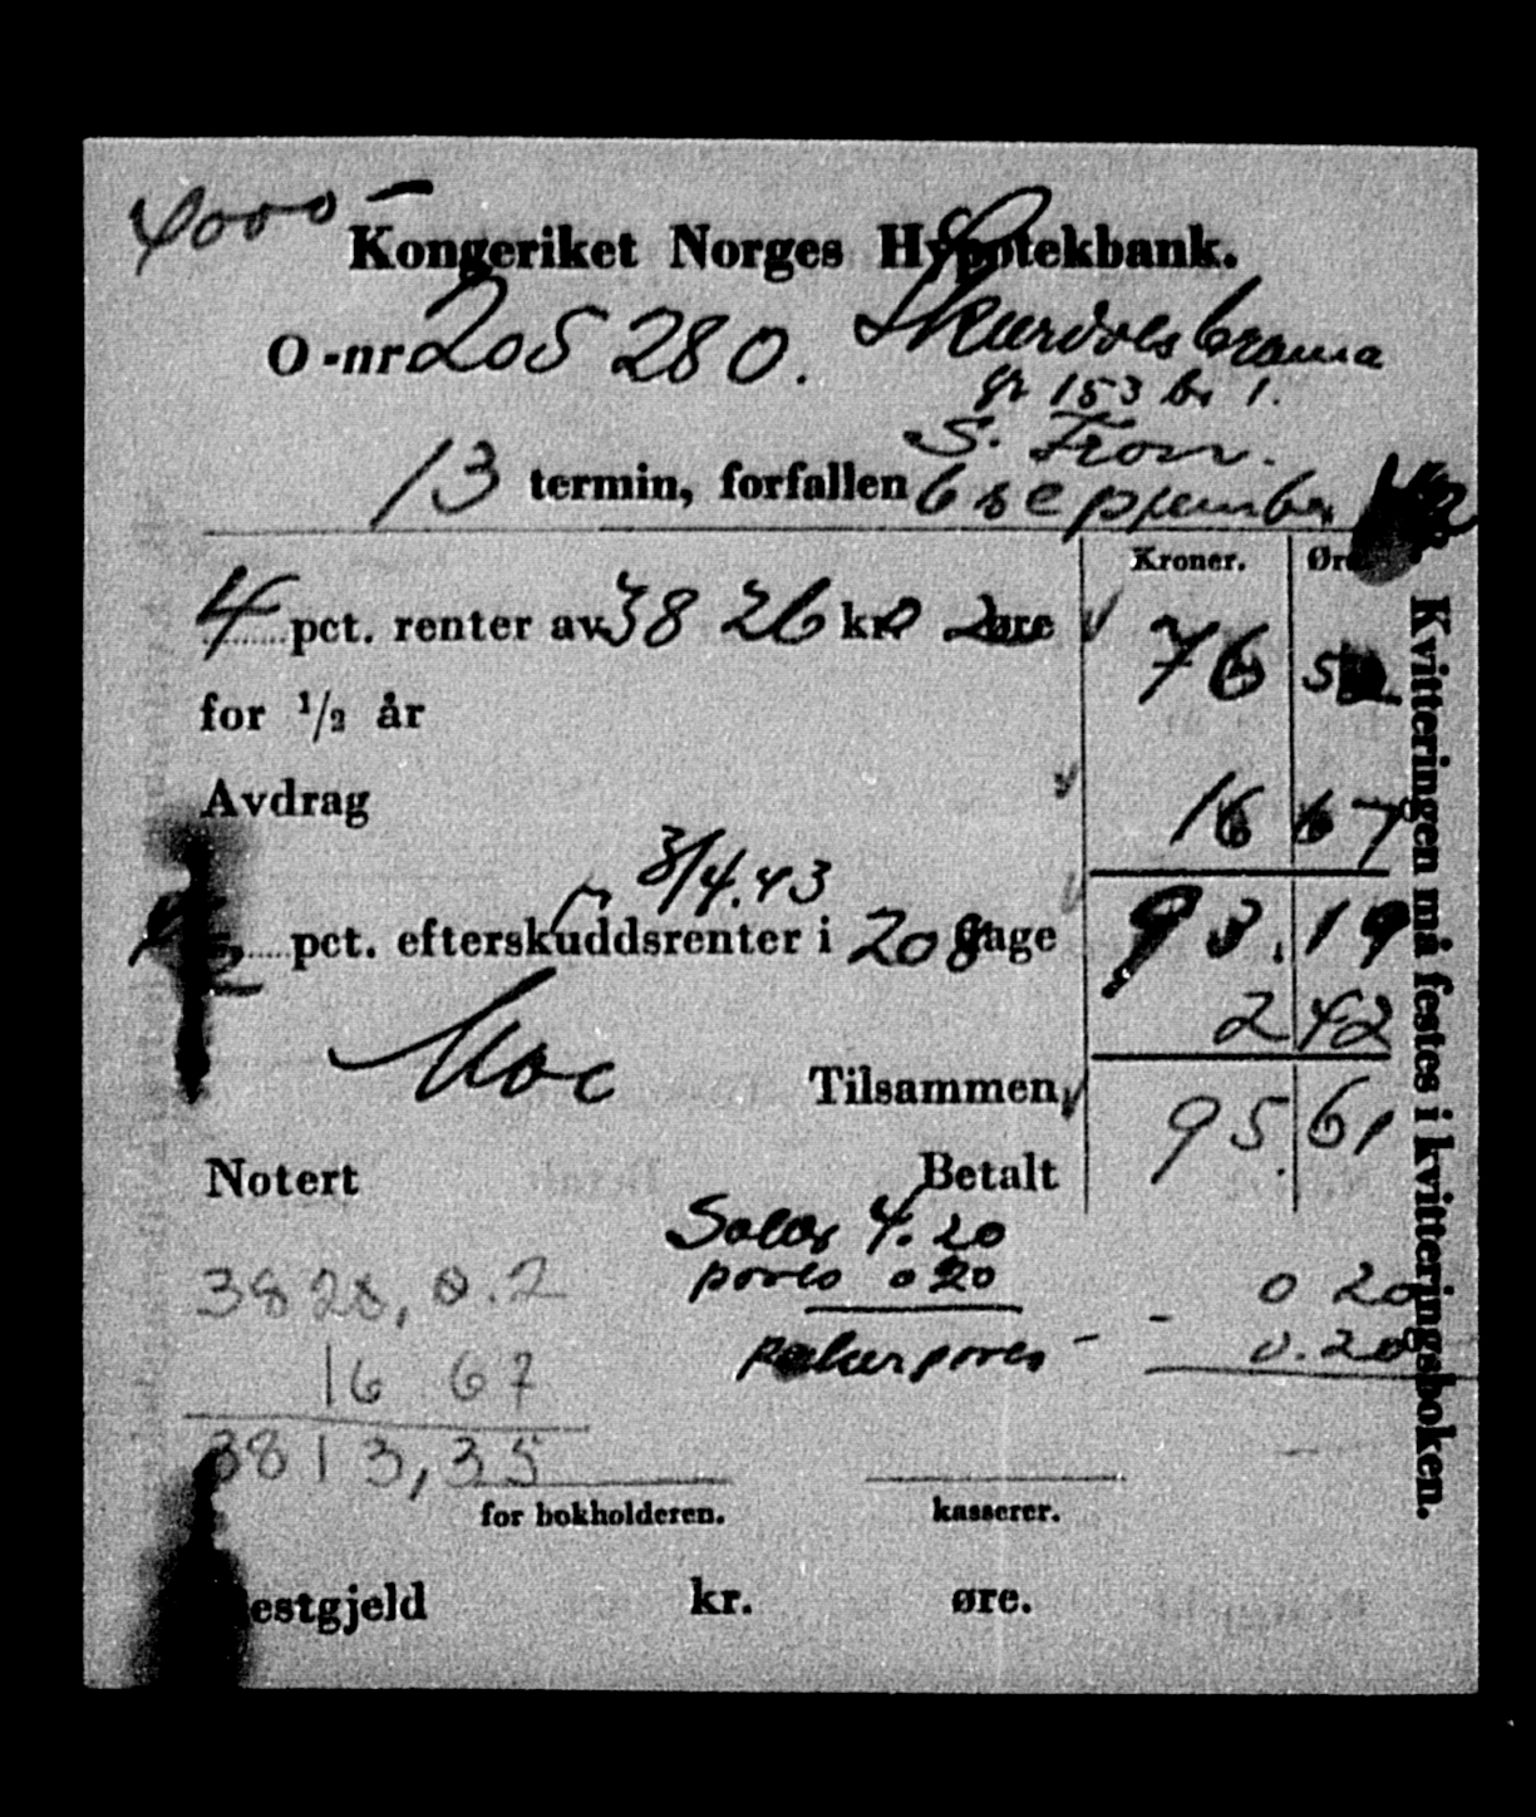 4000 -
Kongeriket Norges Hypotekbank.
O-nr 205 280.
gr 153 br 1.
S. Fron.
13 termin, forfallen 6 september
Kroner. Øre
4 pct. renter av 3826 kr. 02 øre 76 52
for 1/2 år
Avdrag 16 67
3/4.43
pct. efterskuddsrenter i 208 dage 93.19
2 42
Tilsammen 95.61
Notert Betalt
4.20
porto 0 20 0 20
porto - - 0.20
3828,0.2
16 67
3813,35
for bokholderen. kasserer.
estgjeld kr. øre.
Kvitteringen må festes i kvitteringsboken.